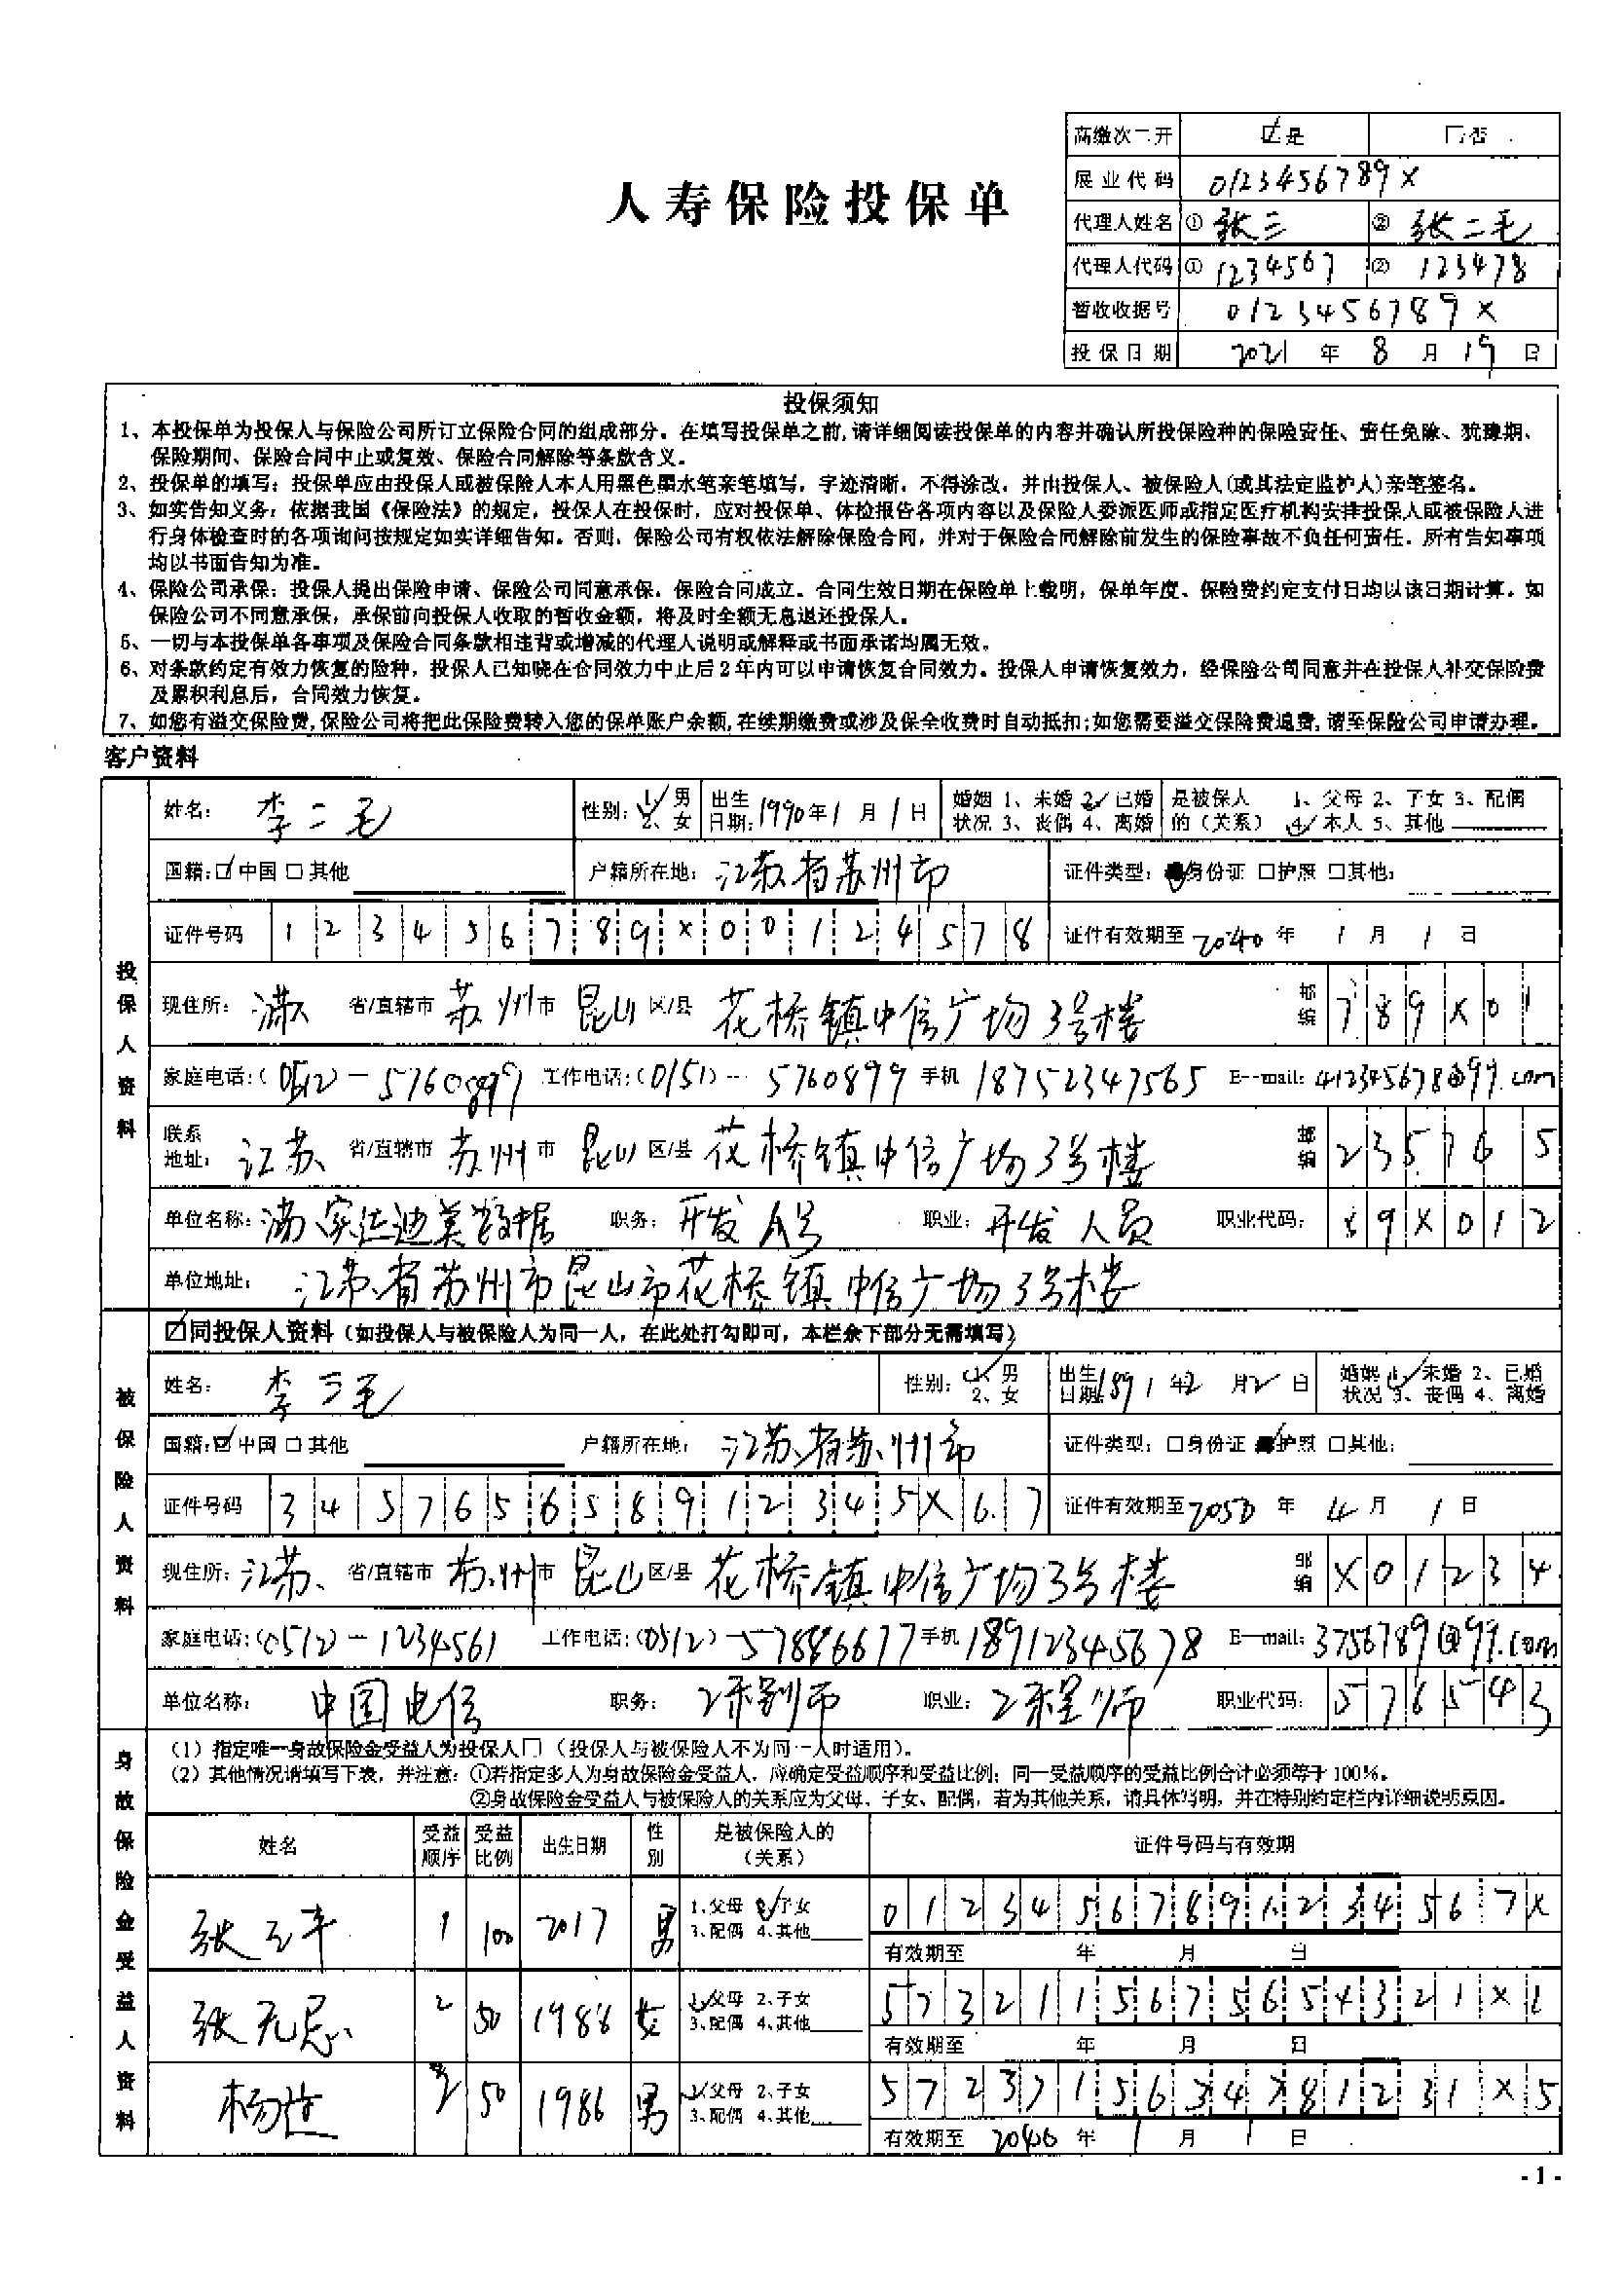 高缴次二开 ☑是 □否
展业代码 0123456789X
代理人姓名 ① 张三 ② 张二毛
代理人代码 ① 1234567 ② 123478
暂收收据号 0123456789X
投保日期 2021 年 8 月 19 日
人寿保险投保单
投保须知
1、本投保单为投保人与保险公司所订立保险合同的组成部分。在填写投保单之前,请详细阅读投保单的内容并确认所投保险种的保险责任、责任免除、犹豫期、
保险期间、保险合同中止或复效、保险合同解除等条款含义。
2、投保单的填写：投保单应由投保人或被保险人本人用黑色墨水笔亲笔填写，字迹清晰，不得涂改，并由投保人、被保险人(或其法定监护人)亲笔签名。
3、如实告知义务：依据我国《保险法》的规定，投保人在投保时，应对投保单、体检报告各项内容以及保险人委派医师或指定医疗机构安排投保人或被保险人进
行身体检查时的各项询问按规定如实详细告知。否则，保险公司有权依法解除保险合同，并对于保险合同解除前发生的保险事故不负任何责任．所有告知事项
均以书面告知为准。
4、保险公司承保：投保人提出保险申请、保险公司同意承保，保险合同成立。合同生效日期在保险单上载明，保单年度、保险费约定支付日均以该日期计算。如
保险公司不同意承保，承保前向投保人收取的暂收金额，将及时全额无息退还投保人。
5、一切与本投保单各事项及保险合同条款相违背或增减的代理人说明或解释或书面承诺均属无效。
6、对条款约定有效力恢复的险种，投保人已知晓在合同效力中止后2年内可以申请恢复合同效力。投保人申请恢复效力，经保险公司同意并在投保人补交保险费
及累积利息后，合同效力恢复。
7、如您有溢交保险费,保险公司将把此保险费转入您的保单账户余额,在续期缴费或涉及保全收费时自动抵扣;如您需要溢交保险费退费,请至保险公司申请办理。
客户资料
投保人资料
姓名： 李二毛 性别：1、男 2、女 出生日期：1990年1月1日 婚姻状况 1、未婚 2、已婚 3、丧偶 4、离婚 是被保人的（关系） 1、父母 2、子女 3、配偶 4、本人 5、其他
国籍:☑中国 □其他 户籍所在地： 江苏省苏州市 证件类型：■身份证 □护照 □其他：
证件号码 123456789X00124578 证件有效期至 2040 年 1 月 1 日
现住所： 省/直辖市 苏州市 昆山 区/县 花桥镇中信广场3号楼 邮编 789X01
家庭电话:(0512)-5760899 工作电话:(0151)-5760899 手机 18752347565 E-mail: 412345678@99.com
联系地址： 江苏 省/直辖市 苏州 市 昆山 区/县 花桥镇中信广场3号楼 邮编 235765
单位名称： 职务： 开发 职业： 开发人员 职业代码： 89X012
单位地址： 江苏省苏州市昆山市花桥镇中信广场3号楼
被保险人资料
☑同投保人资料（如投保人与被保险人为同一人，在此处打勾即可，本栏余下部分无需填写）
姓名： 李三毛 性别：1、男 2、女 出生日期:1891年2月2日 婚姻状况 1、未婚 2、已婚 3、丧偶 4、离婚
国籍:☑中国 □其他 户籍所在地： 江苏省苏州市 证件类型：□身份证 ■护照 □其他：
证件号码 345765658912345X67 证件有效期至2050 年 4 月 1 日
现住所： 江苏 省/直辖市 苏州 市 昆山 区/县 花桥镇中信广场3号楼 邮编 X01234
家庭电话:(0512)-1234561 工作电话:(0512)-57886677 手机 18912345678 E-mail: 3756789@99.com
单位名称： 中国电信 职务： 职业： 工程师 职业代码： 576543
身故保险金受益人资料
（1）指定唯一身故保险金受益人为投保人□（投保人与被保险人不为同一人时适用）。
（2）其他情况请填写下表，并注意：①若指定多人为身故保险金受益人，应确定受益顺序和受益比例；同一受益顺序的受益比例合计必须等于100%。
②身故保险金受益人与被保险人的关系应为父母、子女、配偶，若为其他关系，请具体写明，并在特别约定栏内详细说明原因。
姓名 受益顺序 受益比例 出生日期 性别 是被保险人的（关系） 证件号码与有效期
张 1 100 2017 男 1、父母 2、子女 3、配偶 4、其他 01234567891234567X
有效期至 年 月 日
张无忌 2 50 1988 女 1、父母 2、子女 3、配偶 4、其他 5732115675654321X1
有效期至 年 月 日
杨过 2 50 1986 男 1、父母 2、子女 3、配偶 4、其他 5723715634781231X5
有效期至 2040 年 1 月 1 日
- 1 -